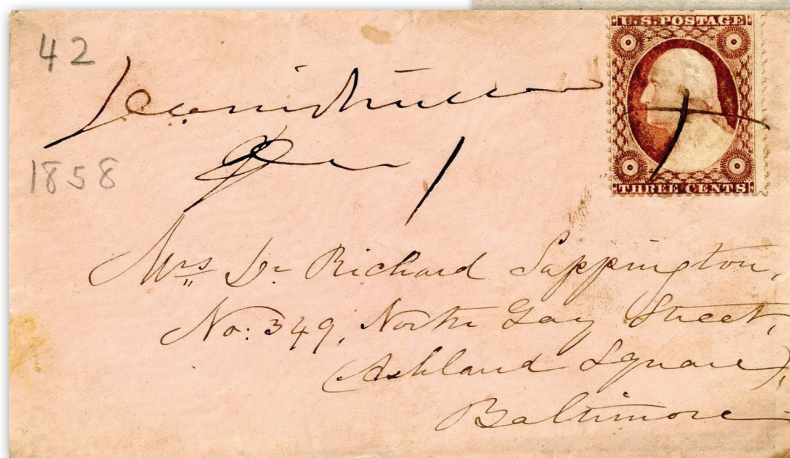 42
1858
U.S. POSTAGE
THREE CENTS
Mrs Dr Richard Sappington,
No: 349, North Gay Street,
(Ashland Square),
Baltimore